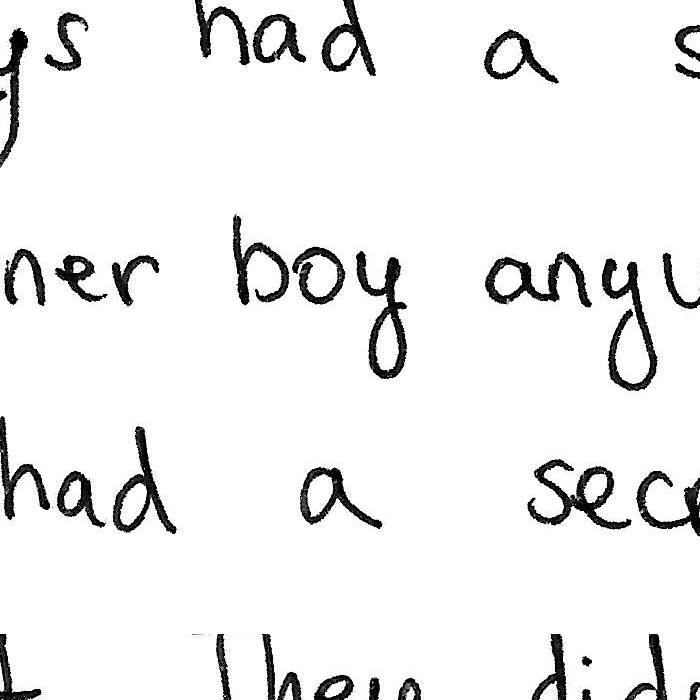 ys had a s
ner boy anyw
had a seco
They did